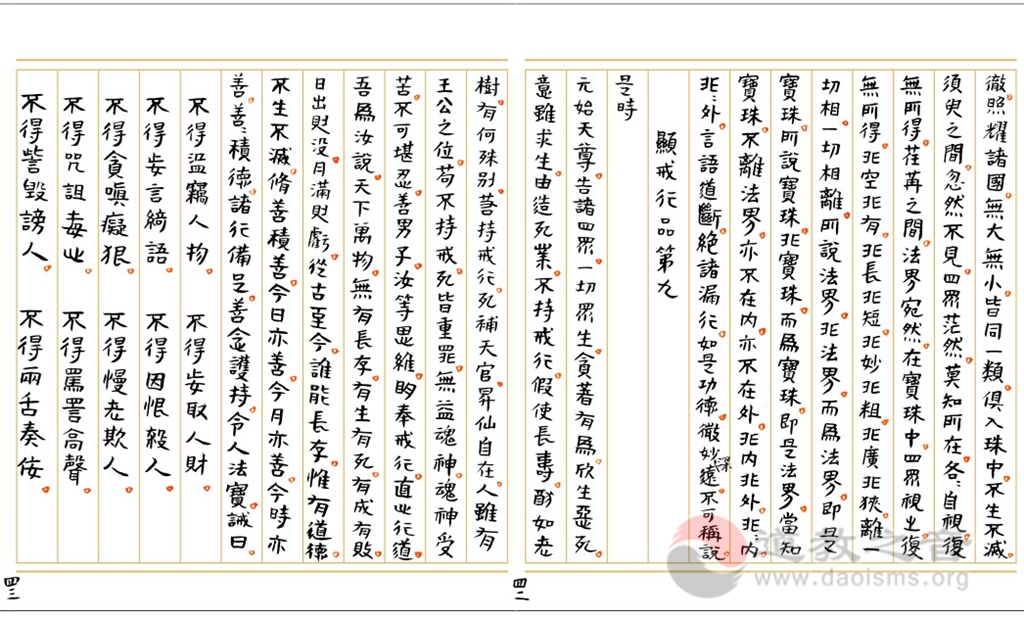 徹照耀諸國無大無小皆同一類俱入珠中不生不滅
須臾之間忽然不見四眾茫然莫知所在各〻自視復
無所得荏苒之間法界宛然在寶珠中四眾視之復
無所得非空非有非長非短非妙非粗非廣非狹離一
切相一切相離所說法界非法界而為法界即是
寶珠所說寶珠非寶珠而為寶珠即是法界當知
寶珠不離法界亦不在內亦不在外非內非外非〻內
非〻外言語道斷絕諸漏行如是功德微妙深遠不可稱說
顯戒行品第九
是時
元始天尊告諸四眾一切眾生貪著有為欣生惡死
意雖求生由造死業不持戒行假使長壽如老
四二
樹有何殊別若持戒行死補天官昇仙自在人雖有
王公之位苟不持戒死皆重罪無益魂神魂神受
苦不可堪忍善男子汝等思維明奉戒行直此行道
吾為汝說天下萬物無有長存有生有死有成有敗
日出則没月滿則虧從古至今誰能長存惟有道德
不生不滅脩善積善今日亦善今月亦善今時亦
善善〻積德諸行備足善念護持令人法寶誡曰
不得盜竊人物 不得妄取人財
不得妄言綺語 不得因恨殺人
不得貪嗔癡狠 不得慢老欺人
不得咒詛毒心 不得罵詈高聲
不得訾毀謗人 不得兩舌奏佞
四三
道教之音
www.daoisms.org